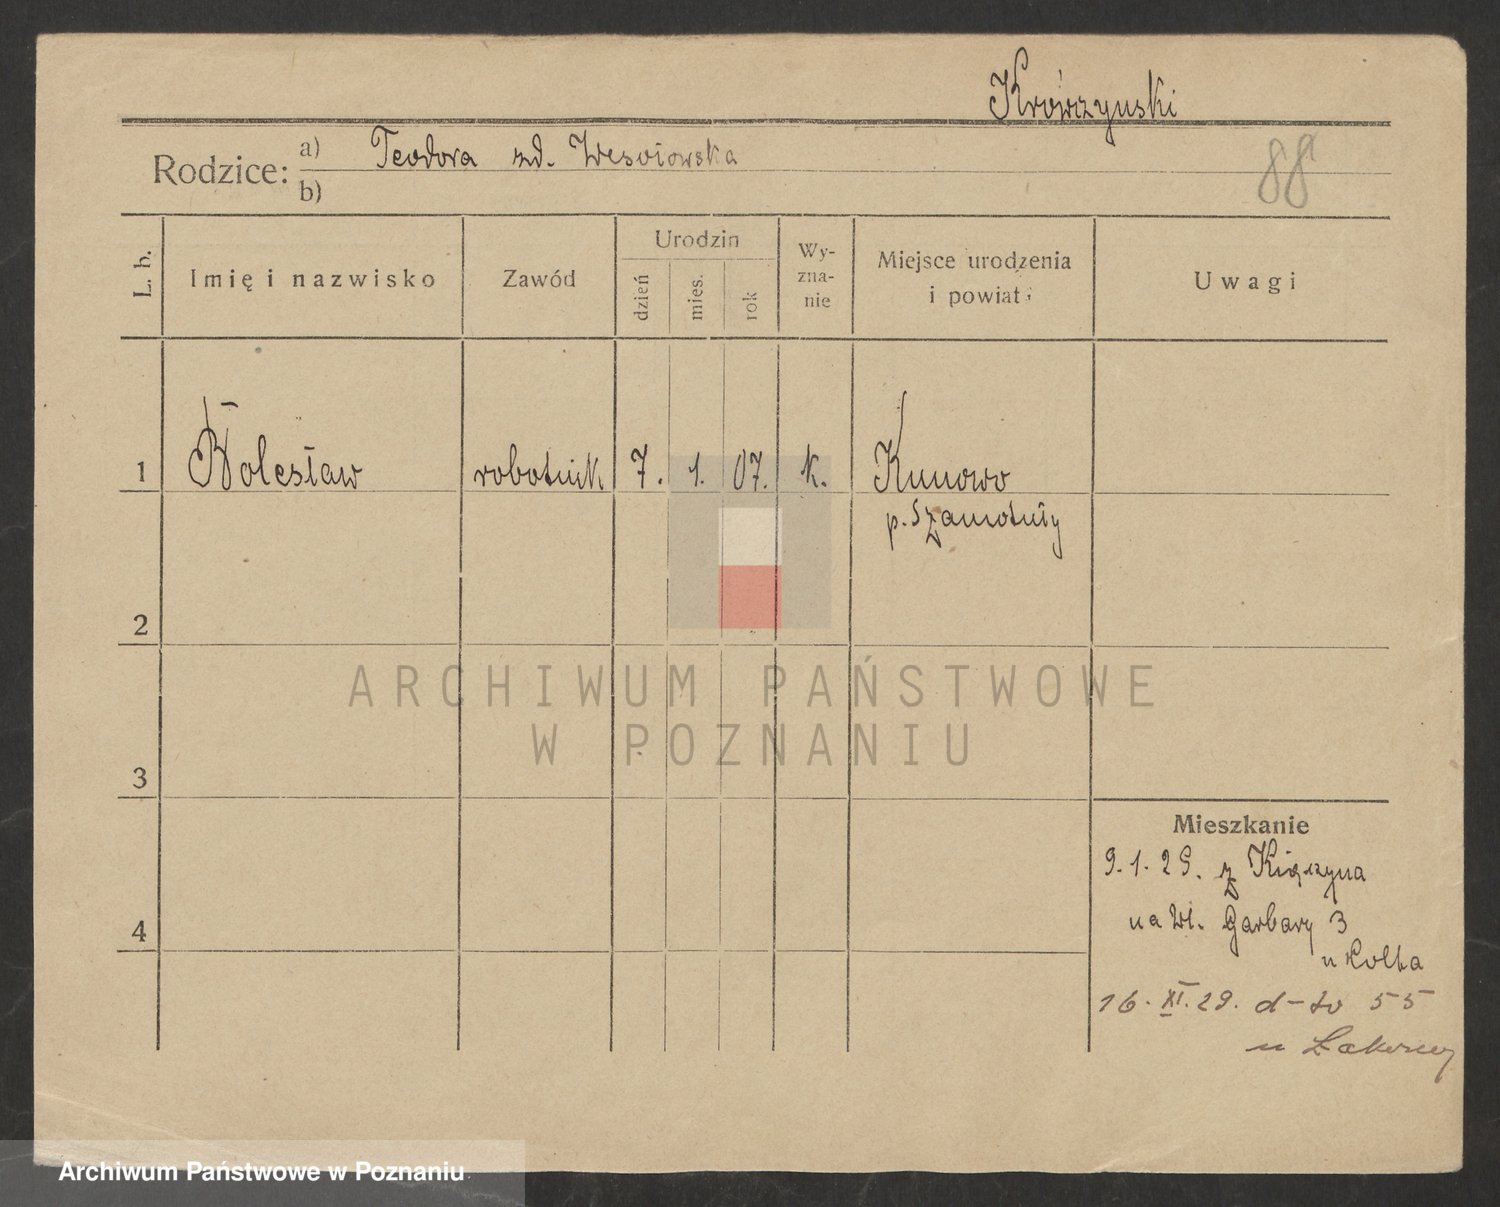 Krówczynski
Rodzice:
a) Teodora zd. Wesołowska
b)
88
L. b.
Imię i nazwisko
Zawód
Urodzin
dzień
mies.
rok
Wy-
zna-
nie
Miejsce urodzenia
i powiat
Uwagi
1 Bolesław robotnik 7. 1. 07. k. Kunowo
p. Szamotuły
2
ARCHIWUM PAŃSTWOWE
W POZNANIU
3
Mieszkanie
9.1.29. z
na Wl. Garbary 3
4
u Kolba
16.XI.29. d-to 55
u
Archiwum Państwowe w Poznaniu